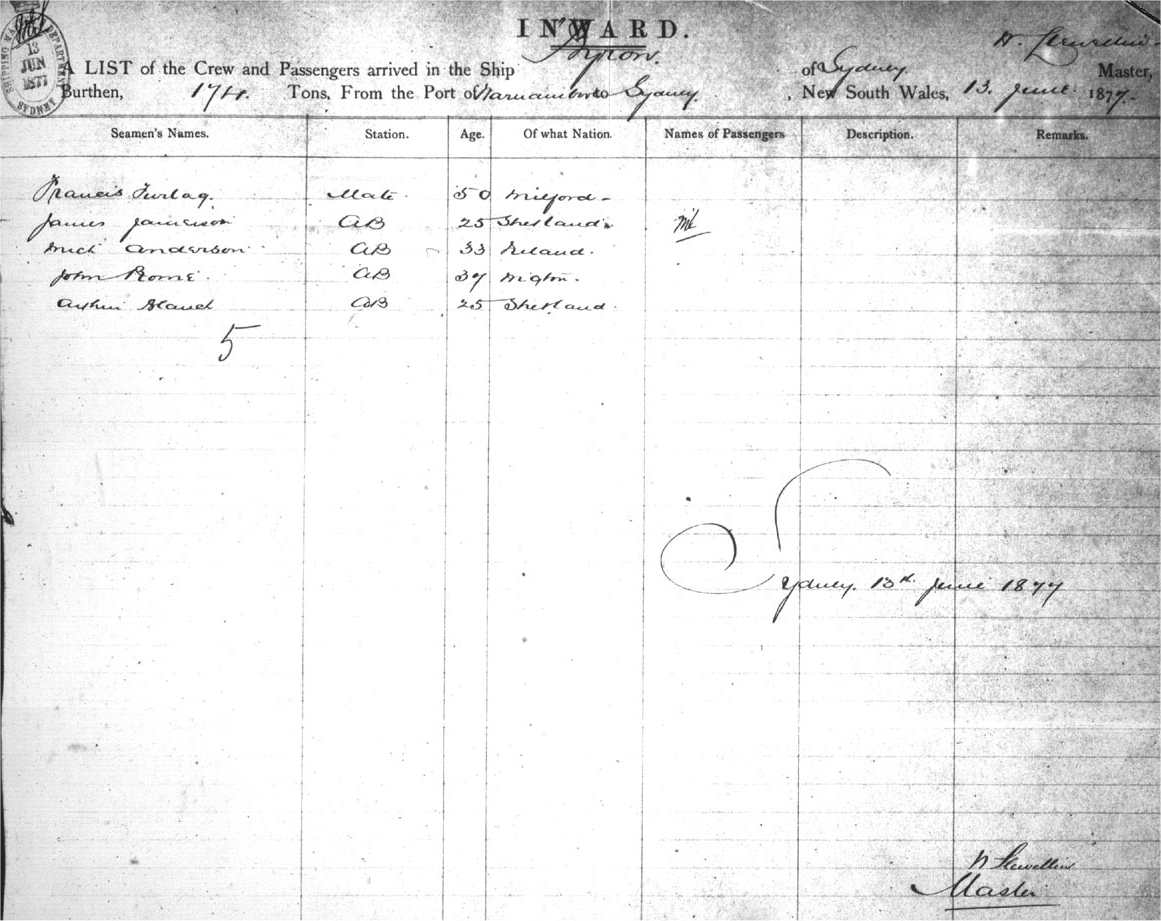 INWARD.
SHIPPING MA DEPARTMENT SYDNEY
13
JUN
1877
A LIST of the Crew and Passengers arrived in the Ship Byron. of Sydney Master,
Burthen, 174 Tons, From the Port of to Sydney, New South Wales, 13. June 1877.
Seamen's Names. Station. Age. Of what Nation. Names of Passengers Description. Remarks.
Francis Mate. 50 Milford
James Jamieson AB 25 Shetland nil
Mich Anderson AB 33 Ireland.
John AB 37
AB 25 Shetland.
5
Sydney. 13th June 1877
Master